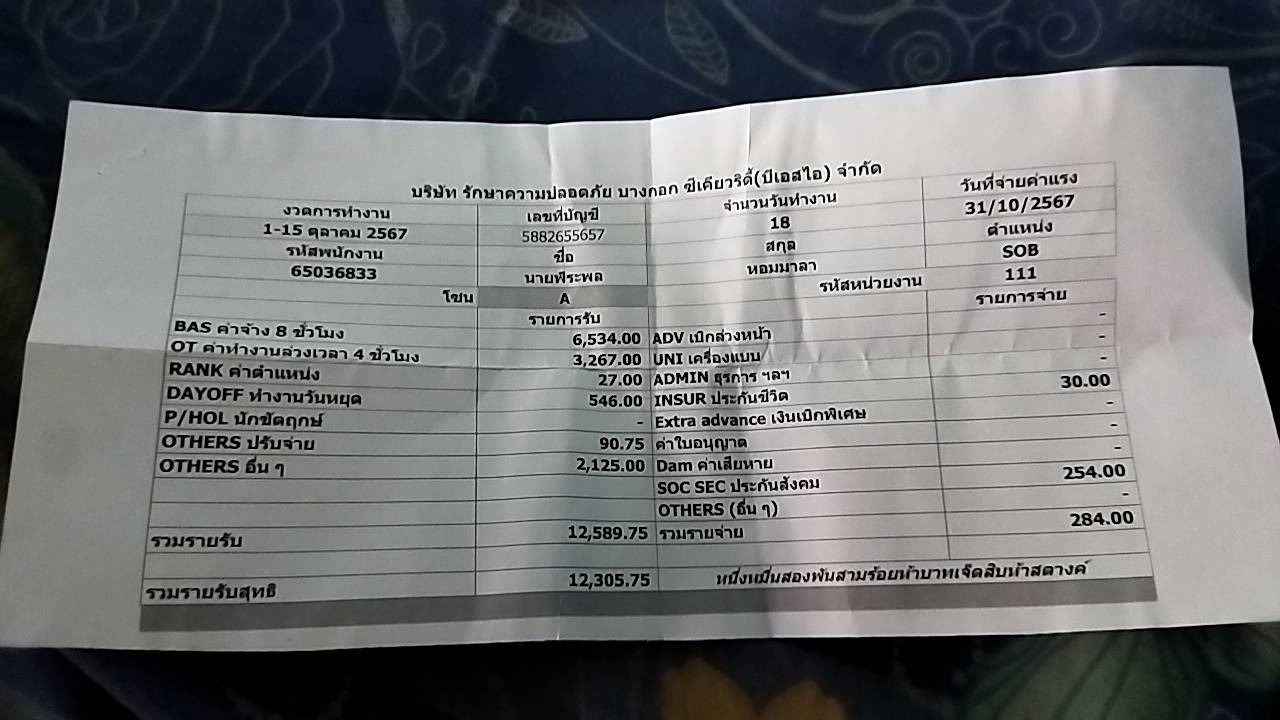 บริษัท รักษาความปลอดภัย บางกอก ซีเคียวริตี้(บีเอสไอ) จำกัด
งวดการทำงาน เลขที่บัญชี จำนวนวันทำงาน วันที่จ่ายค่าแรง
1-15 ตุลาคม 2567 5882655657 18 31/10/2567
รหัสพนักงาน ชื่อ สกุล ตำแหน่ง
65036833 นายพีระพล หอมมาลา SOB
โซน A รหัสหน่วยงาน 111
รายการรับ รายการจ่าย
BAS ค่าจ้าง 8 ชั่วโมง 6,534.00 ADV เบิกล่วงหน้า -
OT ค่าทำงานล่วงเวลา 4 ชั่วโมง 3,267.00 UNI เครื่องแบบ -
RANK ค่าตำแหน่ง 27.00 ADMIN ธุรการ ฯลฯ -
DAYOFF ทำงานวันหยุด 546.00 INSUR ประกันชีวิต 30.00
P/HOL นักขัตฤกษ์ - Extra advance เงินเบิกพิเศษ -
OTHERS ปรับจ่าย 90.75 ค่าใบอนุญาต -
OTHERS อื่น ๆ 2,125.00 Dam ค่าเสียหาย -
SOC SEC ประกันสังคม 254.00
OTHERS (อื่น ๆ) -
รวมรายรับ 12,589.75 รวมรายจ่าย 284.00
รวมรายรับสุทธิ 12,305.75 หนึ่งหมื่นสองพันสามร้อยห้าบาทเจ็ดสิบห้าสตางค์